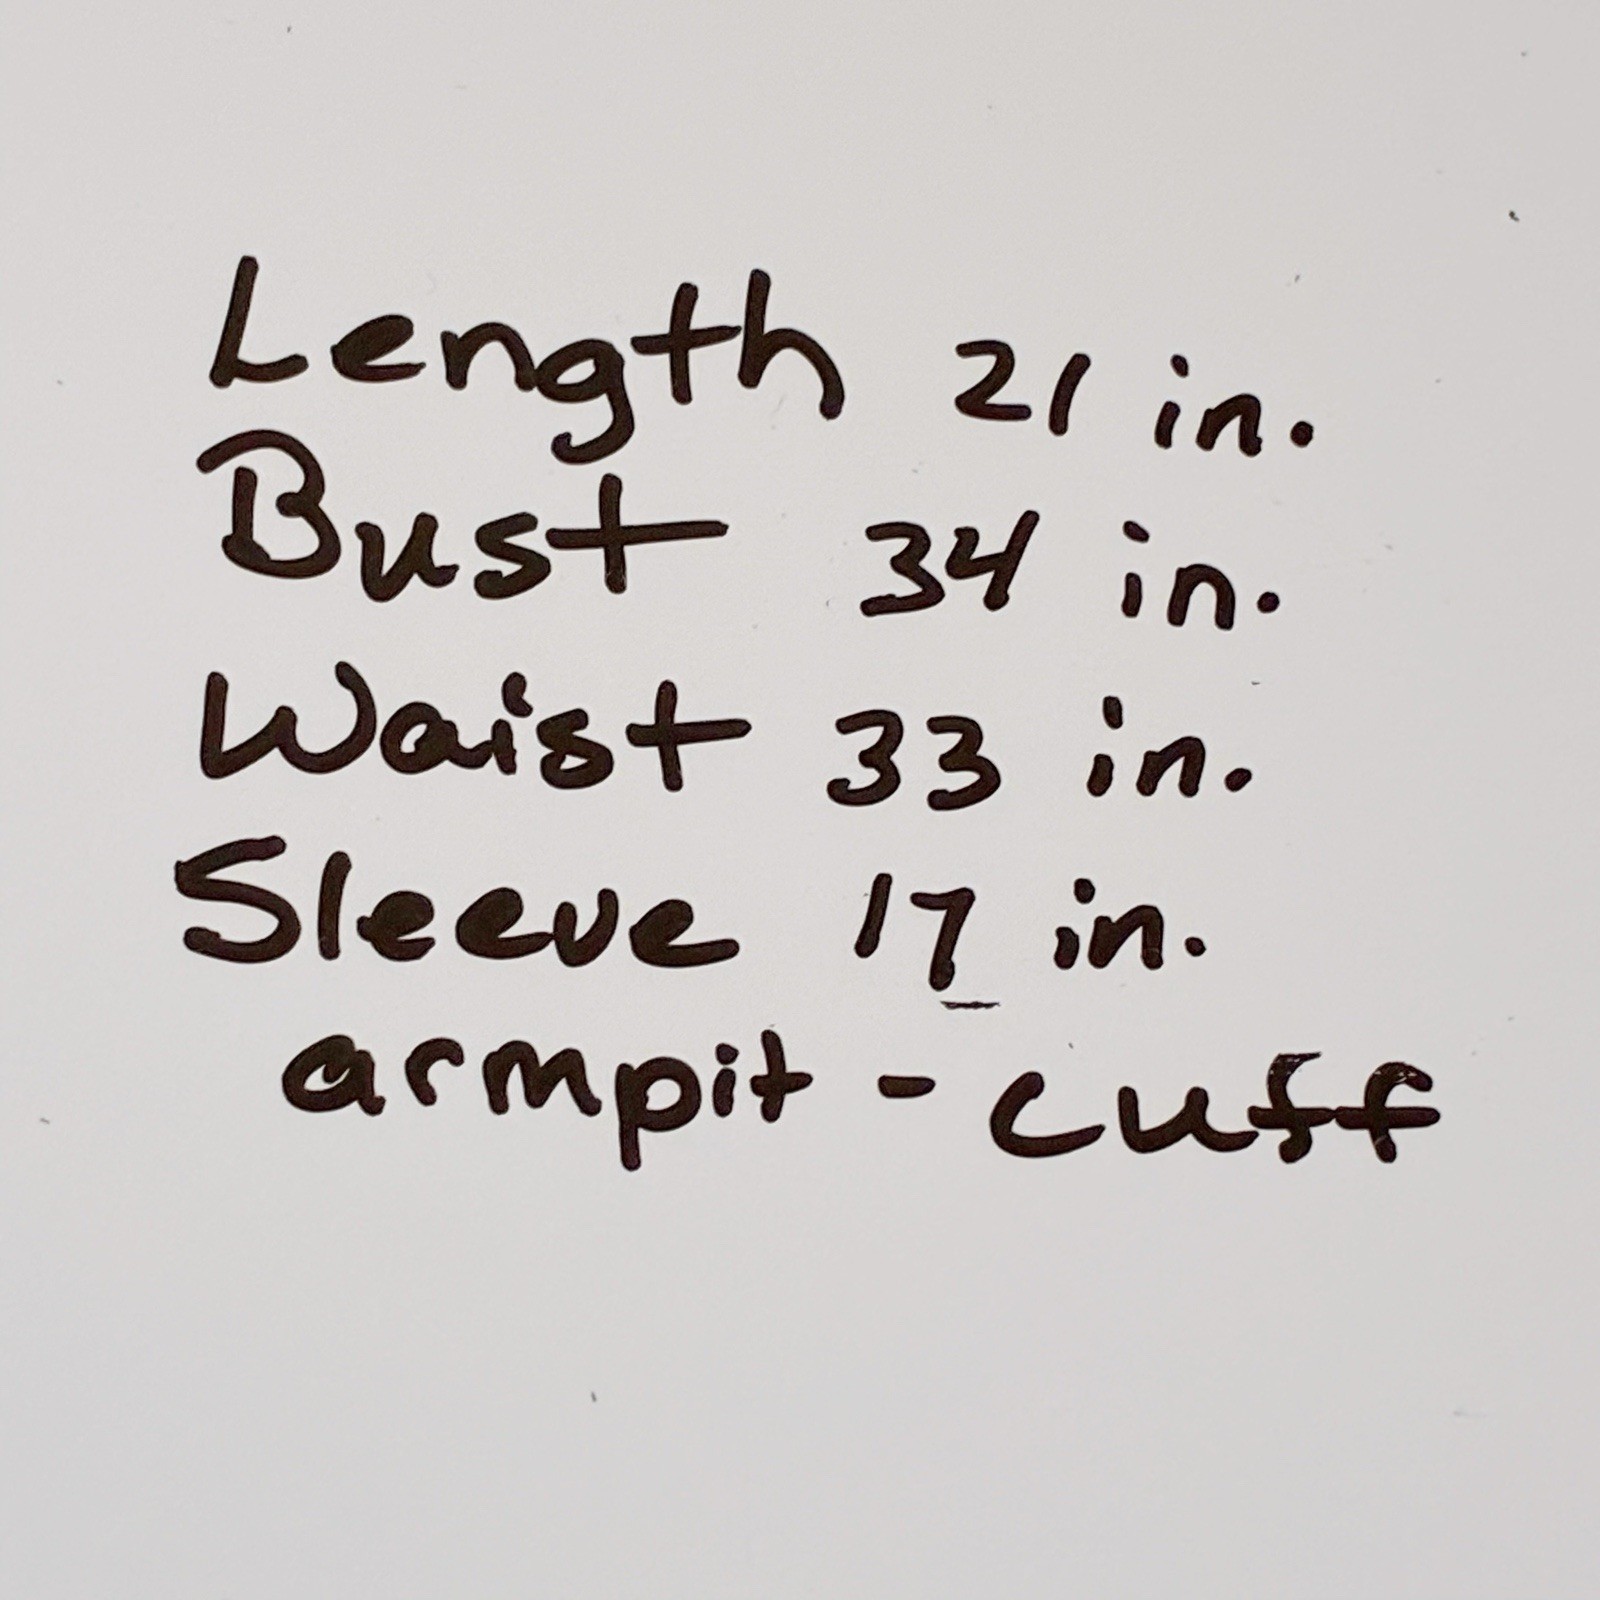 Length 21 in.
Bust 34 in.
Waist 33 in.
Sleeve 17 in.
armpit - cuff